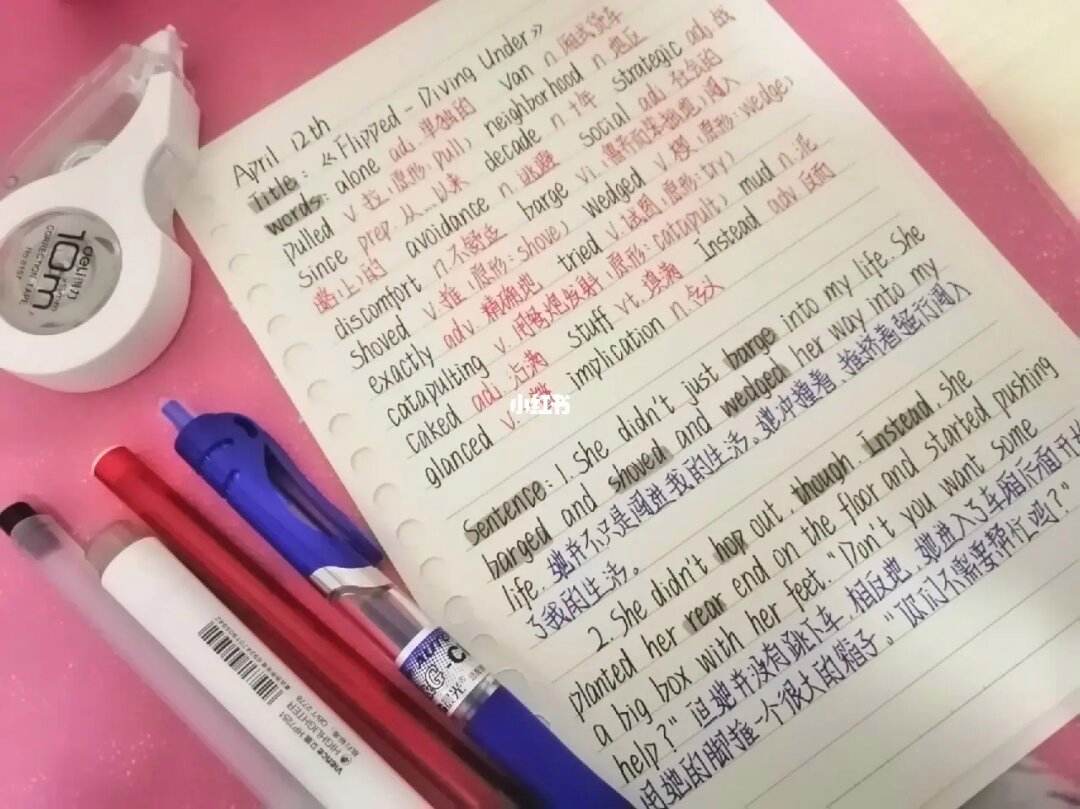 April 12th
Title: 《Flipped - Diving Under》
words: alone adj 单独的 van n 厢式货车
pulled v. 拉 (原形: pull) neighborhood n 地区
since prep. 从...以来 decade n 十年 strategic adj 战
略上的 avoidance n 逃避 social adj 社会的
discomfort n 不舒适 barge vi. 闯入
shoved v. 推 (原形: shove) wedged v. 楔 (原形: wedge)
exactly adv 精确地 tried v. 试图 (原形: try)
catapulting v. 用 发射 (原形: catapult) mud n. 泥
caked adj 沾满 stuff vt. 填满 Instead adv 反而
glanced v. implication n. 含义
Sentence: 1. She didn't just barge into my life. She
barged and shoved and wedged her way into my
life. 她并不只是闯进我的生活。她冲撞着、推挤着强行闯入
了我的生活。
2. She didn't hop out, though. Instead, she
planted her rear end on the floor and started pushing
a big box with her feet. "Don't you want some
help?" 但她并没有跳下车, 相反地, 她进入了车厢下面开始
用她的脚推一个很大的箱子。"你们不需要帮忙吗?"
小红书
deli 得力
10m
CORRECTION TAPE
HIGHLIGHTER HP7251